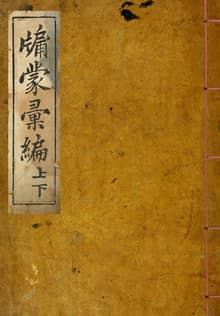 牖蒙彙編上下